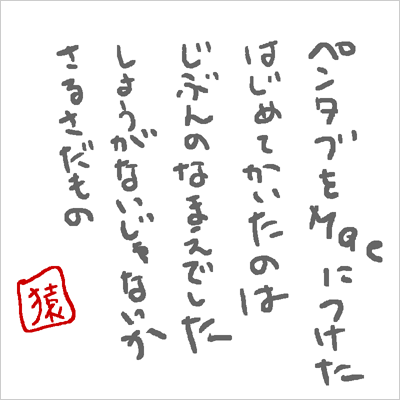 ペンタブをMacにつけた
はじめてかいたのは
じぶんのなまえでした
しょうがないじゃないか
さるさだもの
猿